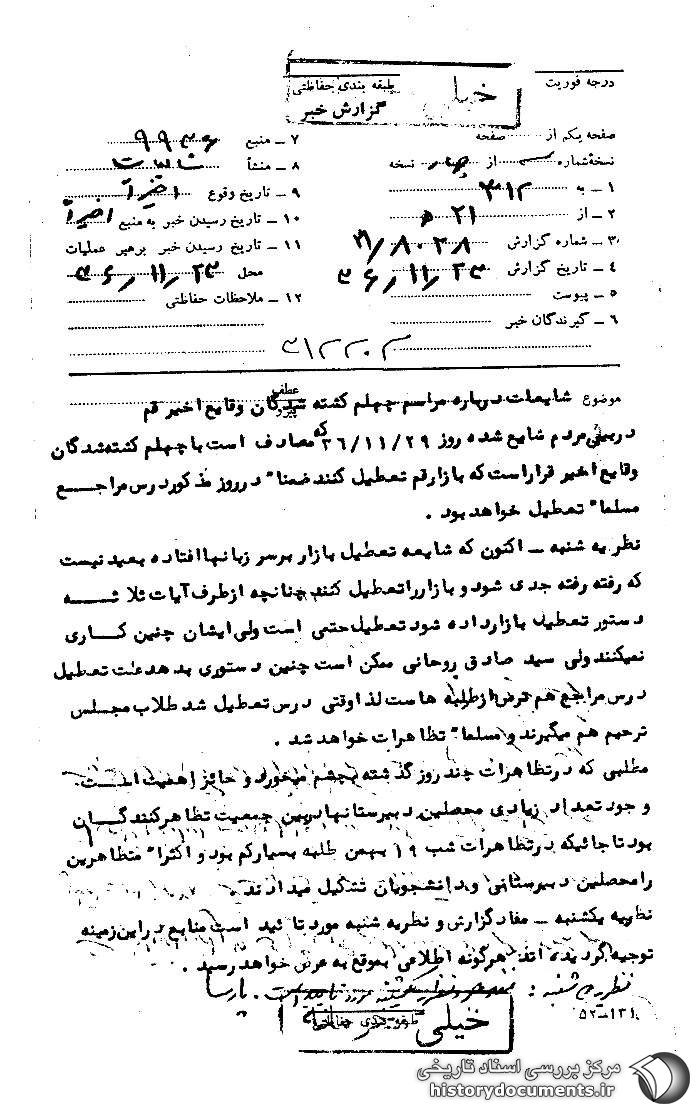 درجه فوریت
خیلی
طبقه بندی حفاظتی
گزارش خبر
صفحه یکم از صفحه
نسخه شماره از چهار نسخه
۱ ــ به ۳۱۲
۲ ــ از ۲۱ ه
۳ ــ شماره گزارش ۲۱/۸۰۲۸
۴ ــ تاریخ گزارش ۳۶/۱۱/۲۳
۵ ــ پیوست
۶ ــ گیرندگان خبر
۷ ــ منبع ۹۹۳۶
۸ ــ منشأ شایعات
۹ ــ تاریخ وقوع اخیراً
۱۰ ــ تاریخ رسیدن خبر به منبع اخیراً
۱۱ ــ تاریخ رسیدن خبر برهبر عملیات
محل ۳۶/۱۱/۲۳
۱۲ ــ ملاحظات حفاظتی
عطف
پیرو
موضوع شایعات درباره مراسم چهلم کشته شدگان وقایع اخیر قم
دربین مردم شایع شده روز ۳۶/۱۱/۲۹ که مصادف است با چهلم کشته‌شدگان
وقایع اخیر قرار است که بازارقم تعطیل کنند ضمنا" در روز مذکور درس مراجع
مسلما" تعطیل خواهد بود .
نظریه شنبه ــ اکنون که شایعه تعطیل بازار برسر زبانها افتاده بعید نیست
که رفته رفته جدی شود و بازار را تعطیل کنند چنانچه ازطرف آیات ثلاثه
دستور تعطیل بازار داده شود تعطیل حتمی است ولی ایشان چنین کاری
نمیکنند ولی سید صادق روحانی ممکن است چنین دستوری بدهد علت تعطیل
درس مراجع هم ترس از طلبه هاست لذا وقتی درس تعطیل شد طلاب مجلس
ترحیم هم میگیرند و مسلما" تظاهرات خواهد شد .
مطلبی که در تظاهرات چند روز گذشته بچشم میخورد و حائز اهمیت است
وجود تعداد زیادی محصلین دبیرستانها دربین جمعیت تظاهرکنندگان
بود تا جائیکه در تظاهرات شب ۱۹ بهمن طلبه بسیار کم بود و اکثرا" متظاهرین
را محصلین دبیرستانی و دانشجویان تشکیل میدادند .
نظریه یکشنبه ــ مفاد گزارش و نظریه شنبه مورد تائید است منابع دراین زمینه
توجیه گردیده اند هرگونه اطلاعی بموقع به عرض خواهد رسید .
نظریه دوشنبه : نظریه یکشنبه مورد تایید است . پارسا
خیلی
طبقه بندی حفاظتی
مرکز بررسی اسناد تاریخی
historydocuments.ir